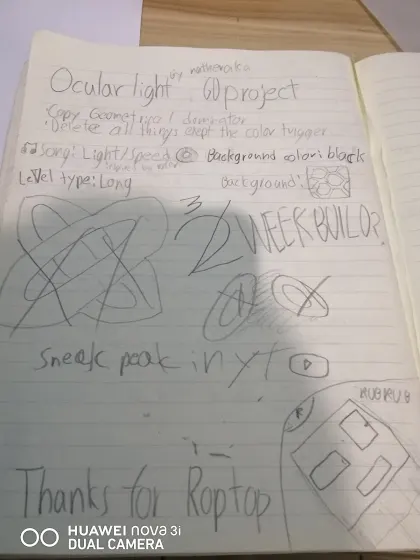 Ocular light GD project
by
Copy Geometrical dominator
Delete all things exept the color trigger
Song: Light/Speed Background color: black
Level type: Long Background:
3
2 WEEK BUILD?
Sneak peak in yt
Thanks for Roptop
HUAWEI nova 3i
DUAL CAMERA